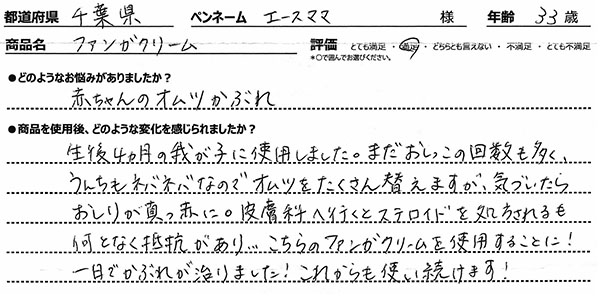 都道府県 千葉県 ペンネーム エースママ 様 年齢 33 歳
商品名 ファンガクリーム 評価 とても満足 ・ 満足 ・ どちらとも言えない ・ 不満足 ・ とても不満足
*○で囲んでお選びください。
●どのようなお悩みがありましたか?
赤ちゃんのオムツかぶれ
●商品を使用後、どのような変化を感じられましたか?
生後4カ月の我が子に使用しました。まだおしっこの回数も多く、
うんちもネバネバなのでオムツをたくさん替えますが、気づいたら
おしりが真っ赤に。皮膚科へ行くとステロイドを処方されるも
何となく抵抗があり…こちらのファンガクリームを使用することに!
一日でかぶれが治りました!これからも使い続けます!